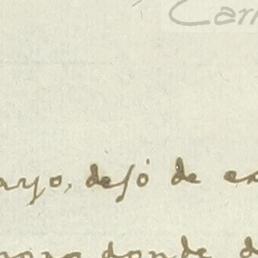 Car
ayo, dejó de ex
donde d